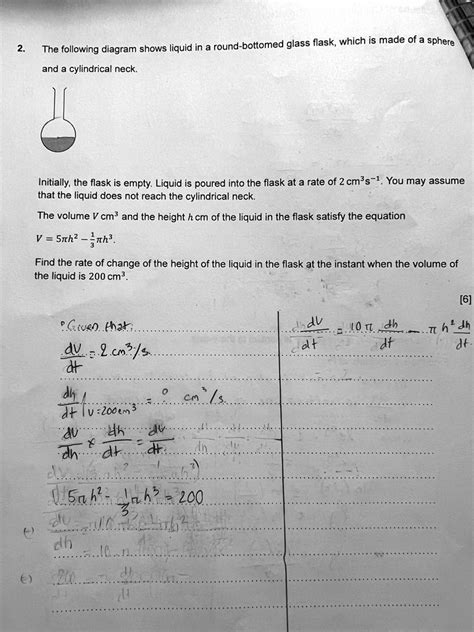 2. The following diagram shows liquid in a round-bottomed glass flask, which is made of a sphere
and a cylindrical neck.
Initially, the flask is empty. Liquid is poured into the flask at a rate of 2 cm³s⁻¹. You may assume
that the liquid does not reach the cylindrical neck.
The volume V cm³ and the height h cm of the liquid in the flask satisfy the equation
V = 5πh² − 1/3 πh³.
Find the rate of change of the height of the liquid in the flask at the instant when the volume of
the liquid is 200 cm³.
[6]
Given that:
dV/dt = 2 cm³/s
dh/dt | V=200cm³ = ° cm³/s
dV/dh × dh/dt = dV/dt
5πh² - 1/3 πh³ = 200
dV/dt = 10π dh/dt - πh² dh/dt